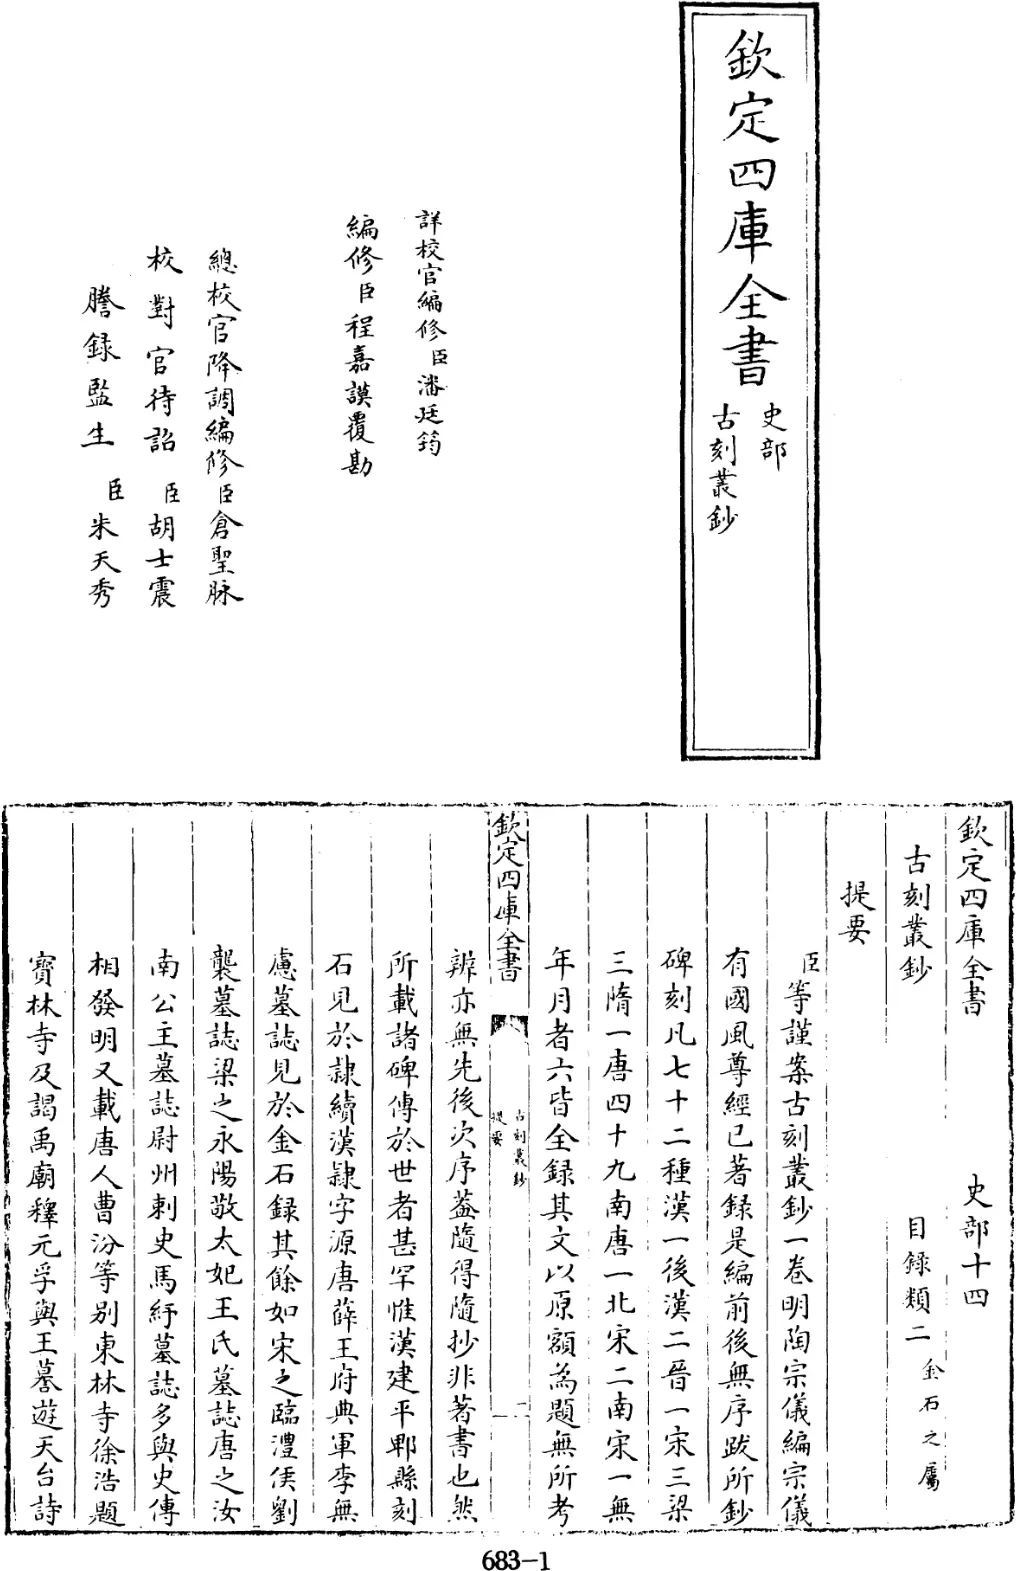 欽定四庫全書
史部
古刻叢鈔
詳校官編修臣潘廷筠
編修臣程嘉謨覆勘
總校官降調編修臣倉聖脉
校對官待詔臣胡士震
謄錄監生臣朱天秀
欽定四庫全書 史部十四
古刻叢鈔 目錄類二金石之屬
提要
臣等謹案古刻叢鈔一卷明陶宗儀編宗儀
有國風尊經已著錄是編前後無序跋所鈔
碑刻凡七十二種漢一後漢二晉一宋三梁
三隋一唐四十九南唐一北宋二南宋一無
年月者六皆全錄其文以原額為題無所考
欽定四庫全書
古刻叢鈔
提要
一
辨亦無先後次序葢隨得隨抄非著書也然
所載諸碑傳於世者甚罕惟漢建平郫縣刻
石見於隸續漢隸字源唐薛王府典軍李無
慮墓誌見於金石錄其餘如宋之臨澧侯劉
襲墓誌梁之永陽敬太妃王氏墓誌唐之汝
南公主墓誌尉州刺史馬紓墓誌多與史傳
相發明又載唐人曹汾等别東林寺徐浩題
寳林寺及謁禹廟釋元孚與王蓍遊天台詩
683-1